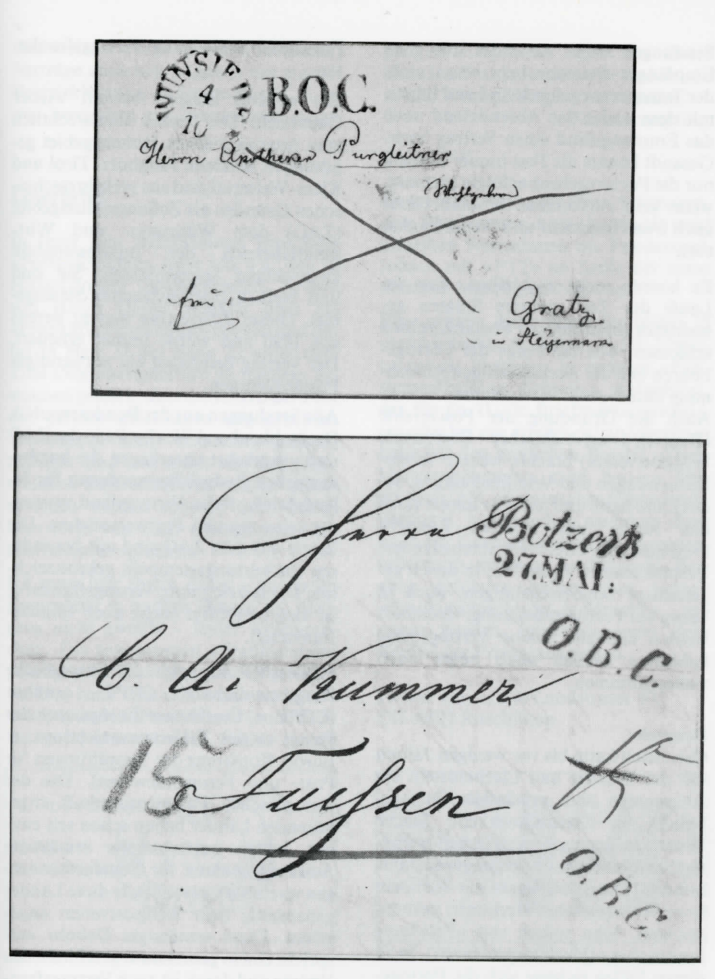 WUNSIEDEL
4
10
B.O.C.
Herrn Apotheker Purgleitner
Wohlgeboren
frei
Gratz
in Steÿermark
Herrn
Botzen
27.MAI.
O.B.C.
C A. Kummer
15
Fuessen
O.B.C.